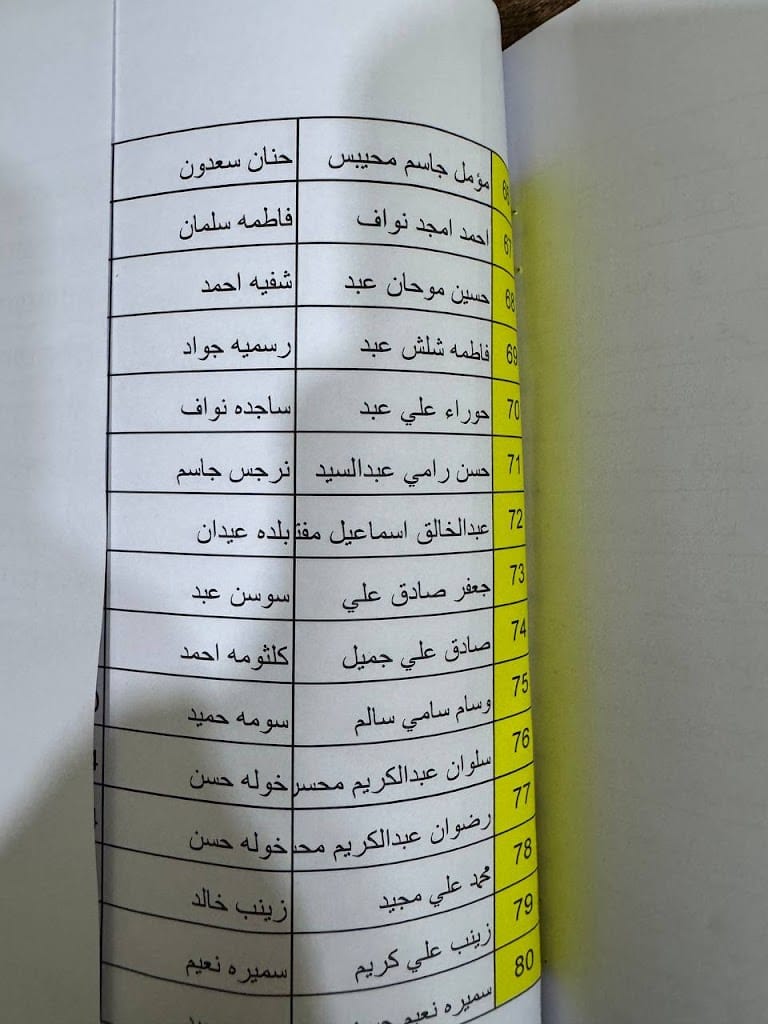 66 مؤمل جاسم محيبس حنان سعدون
67 احمد امجد نواف فاطمه سلمان
68 حسين موحان عبد شفيه احمد
69 فاطمه شلش عبد رسميه جواد
70 حوراء علي عبد ساجده نواف
71 حسن رامي عبدالسيد نرجس جاسم
72 عبدالخالق اسماعيل بلده عيدان
73 جعفر صادق علي سوسن عبد
74 صادق علي جميل كلثومه احمد
75 وسام سامي سالم سومه حميد
76 سلوان عبدالكريم محسن خوله حسن
77 رضوان عبدالكريم خوله حسن
78 محمد علي مجيد زينب خالد
79 زينب علي كريم سميره نعيم
80 سميره نعيم